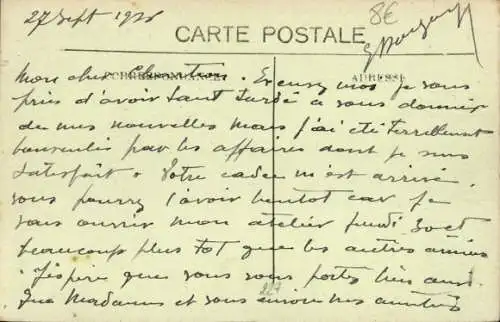 27 Sept 1928
8€
CARTE POSTALE
CORRESPONDANCE
ADRESSE
Mon cher. Excusez moi je vous
prie d'avoir tant tardé a vous donner
de mes nouvelles mais j'ai été terriblement
bousculé par les affaires dont je suis
satisfait. Votre cadre m'est arrivé.
vous pourrez l'avoir bientot car je
vais ouvrir mon atelier jeudi
beaucoup plus tot que les autres années
J'espère que vous vous portez bien ainsi
Que Madame et vous
227